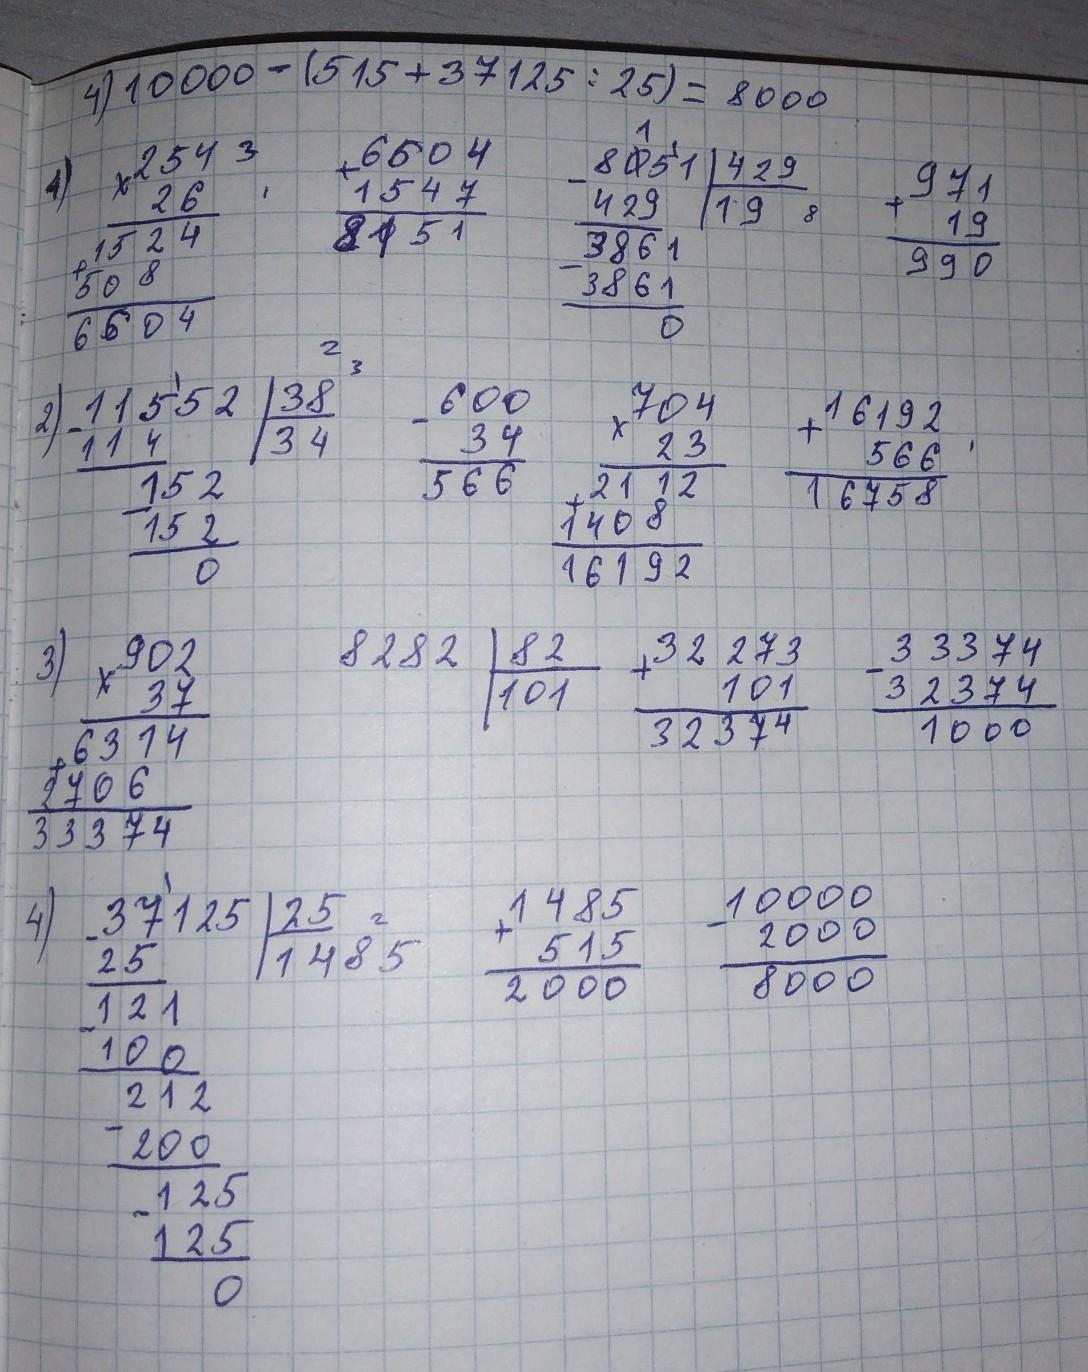 4) 10000 - (515 + 37125 : 25) = 8000
1)
× 254 3
26
+ 1524
508
6604
+ 6504
1547
8151
1
- 8051 | 429
429 | 19 8
3861
- 3861
0
+ 971
19
990
2)
2
3
- 11552 | 38
114 | 34
- 152
152
0
- 600
34
566
× 704
23
+ 2112
1408
16192
+ 16192
566
16758
3)
× 902
37
+ 6314
2706
33374
8282 | 82
101
+ 32273
101
32374
- 33374
32374
1000
4)
- 37125 | 25 2
25 | 1485
- 121
100
212
- 200
- 125
125
0
+ 1485
515
2000
- 10000
2000
8000